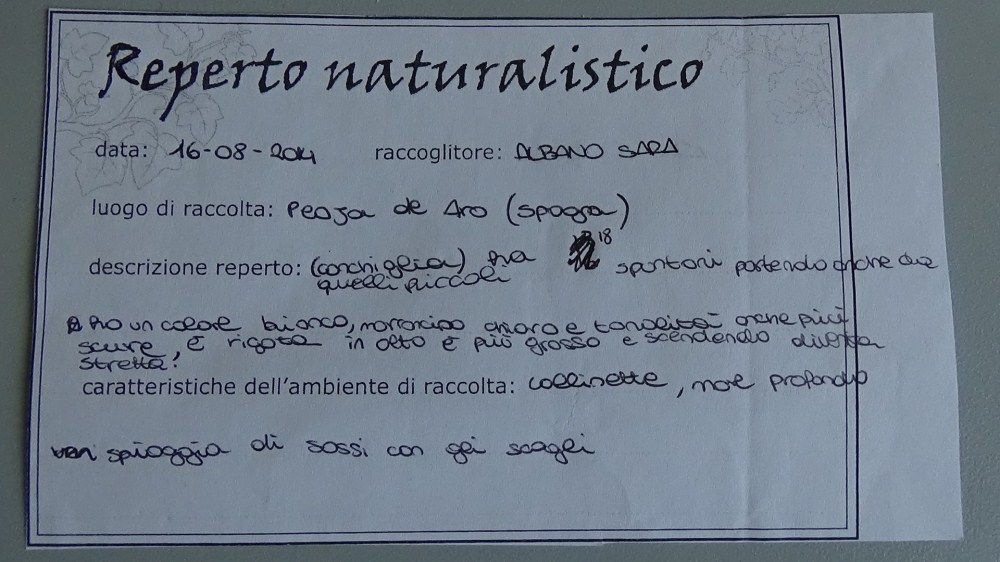 Reperto naturalistico
data: 16-08-2014 raccoglitore: ALBANO SARA
luogo di raccolta: de Aro (spagna)
descrizione reperto: (conchiglia) ha 18 spuntoni partendo anche dai
quelli piccoli
ha un colore bianco, marroncino chiaro e tonalità anche più
scure, è rigata in alto è più grosso e scendendo diventa
stretta.
caratteristiche dell'ambiente di raccolta: collinette, mare profondo
spiaggia di sassi con gli scogli